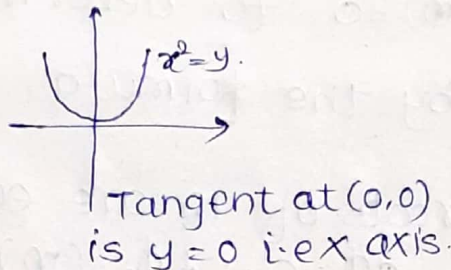 x²=y.
Tangent at (0,0)
is y=0 i.e x axis.